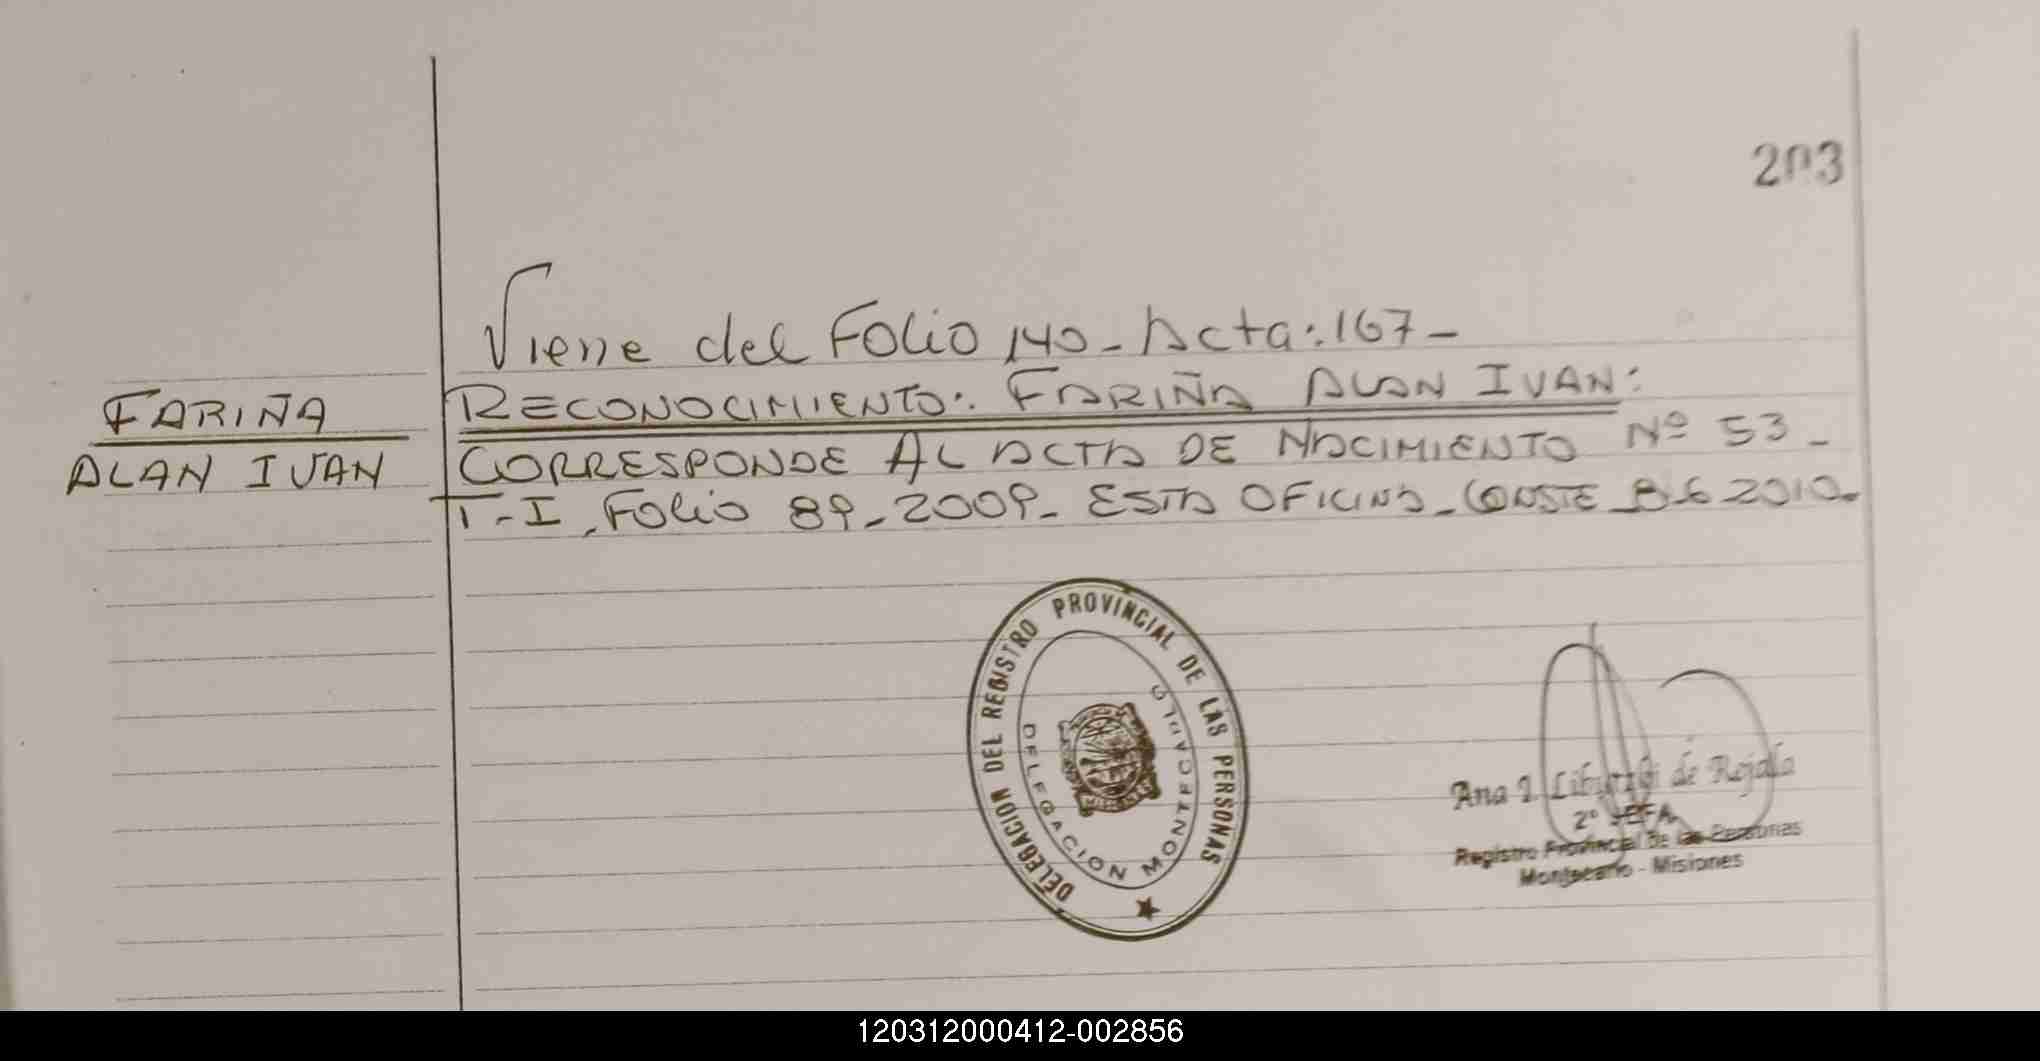 203
Viene del Folio 140_ Acta: 167_
FARIÑA
ALAN IVAN
RECONOCIMIENTO: FARIÑA ALAN IVAN:
CORRESPONDE AL ACTA DE NACIMIENTO Nº 53_
T-I, Folio 89_2009_ ESTA OFICINA_CONSTE_8-6 2010_
DELEGACION DEL REGISTRO PROVINCIAL DE LAS PERSONAS
DELEGACION MONTECARLO
Ana I. de Rojala
2º JEFA
Registro Provincial de las Personas
Montecarlo - Misiones
120312000412-002856